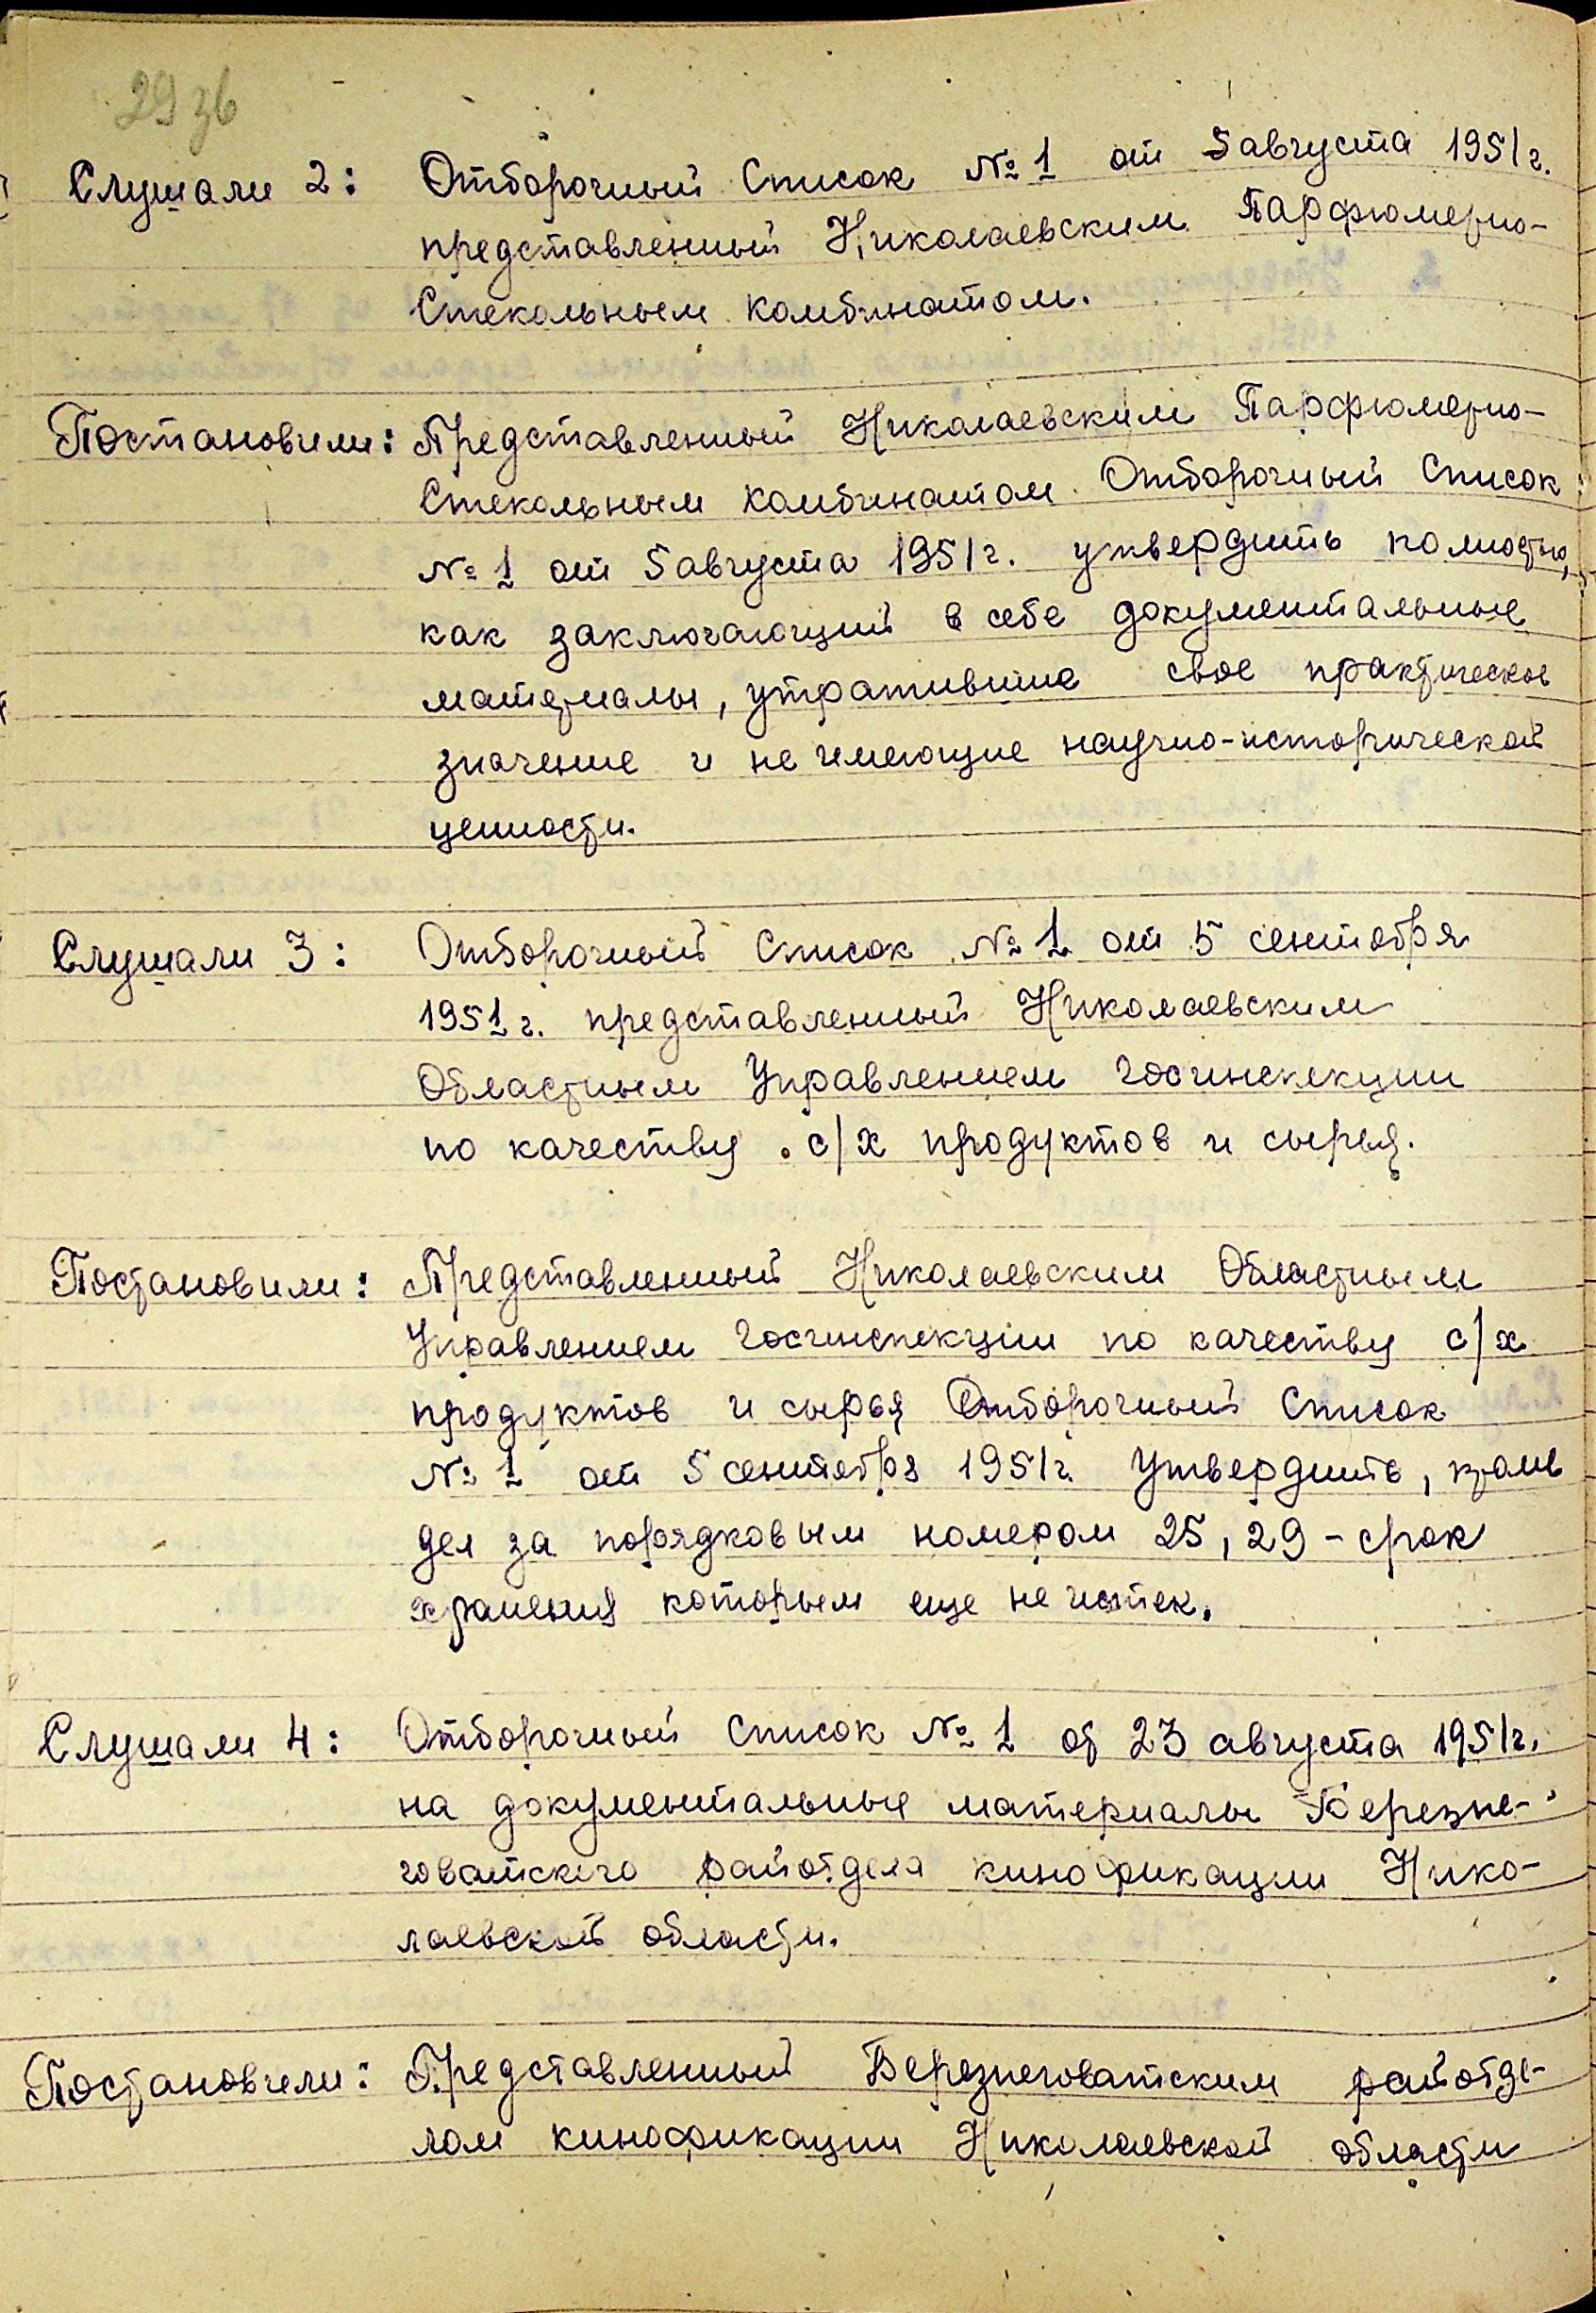 29 зв
Слушали 2: Отборочный Список № 1 от 5 августа 1951 г.
представленный Николаевским Парфюмерно-
Стекольным комбинатом.
Постановили: Представленный Николаевским Парфюмерно-
Стекольным комбинатом Отборочный Список
№ 1 от 5 августа 1951 г. утвердить полностью,
как заключающий в себе документальные
материалы, утратившие свое практическое
значение и не имеющие научно-исторической
ценности.
Слушали 3: Отборочный Список № 1 от 5 сентября
1951 г. представленный Николаевским
Областным Управлением Госинспекции
по качеству с/х продуктов и сырья.
Постановили: Представленный Николаевским Областным
Управлением Госинспекции по качеству с/х
продуктов и сырья Отборочный Список
№ 1 от 5 сентября 1951 г. Утвердить, кроме
дел за порядковым номером 25, 29 - срок
хранения которым еще не истек.
Слушали 4: Отборочный Список № 1 от 23 августа 1951 г.
на документальные материалы Березне-
говатского райотдела кинофикации Нико-
лаевской области.
Постановили: Представленный Березнеговатским райотде-
лом кинофикации Николаевской области